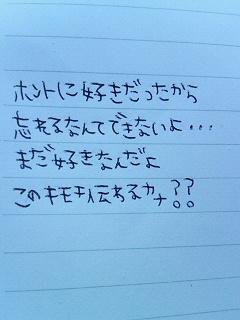 ホントに好きだったから
忘れるなんてできないよ・・・
まだ好きなんだよ
このキモチ伝わるカナ??